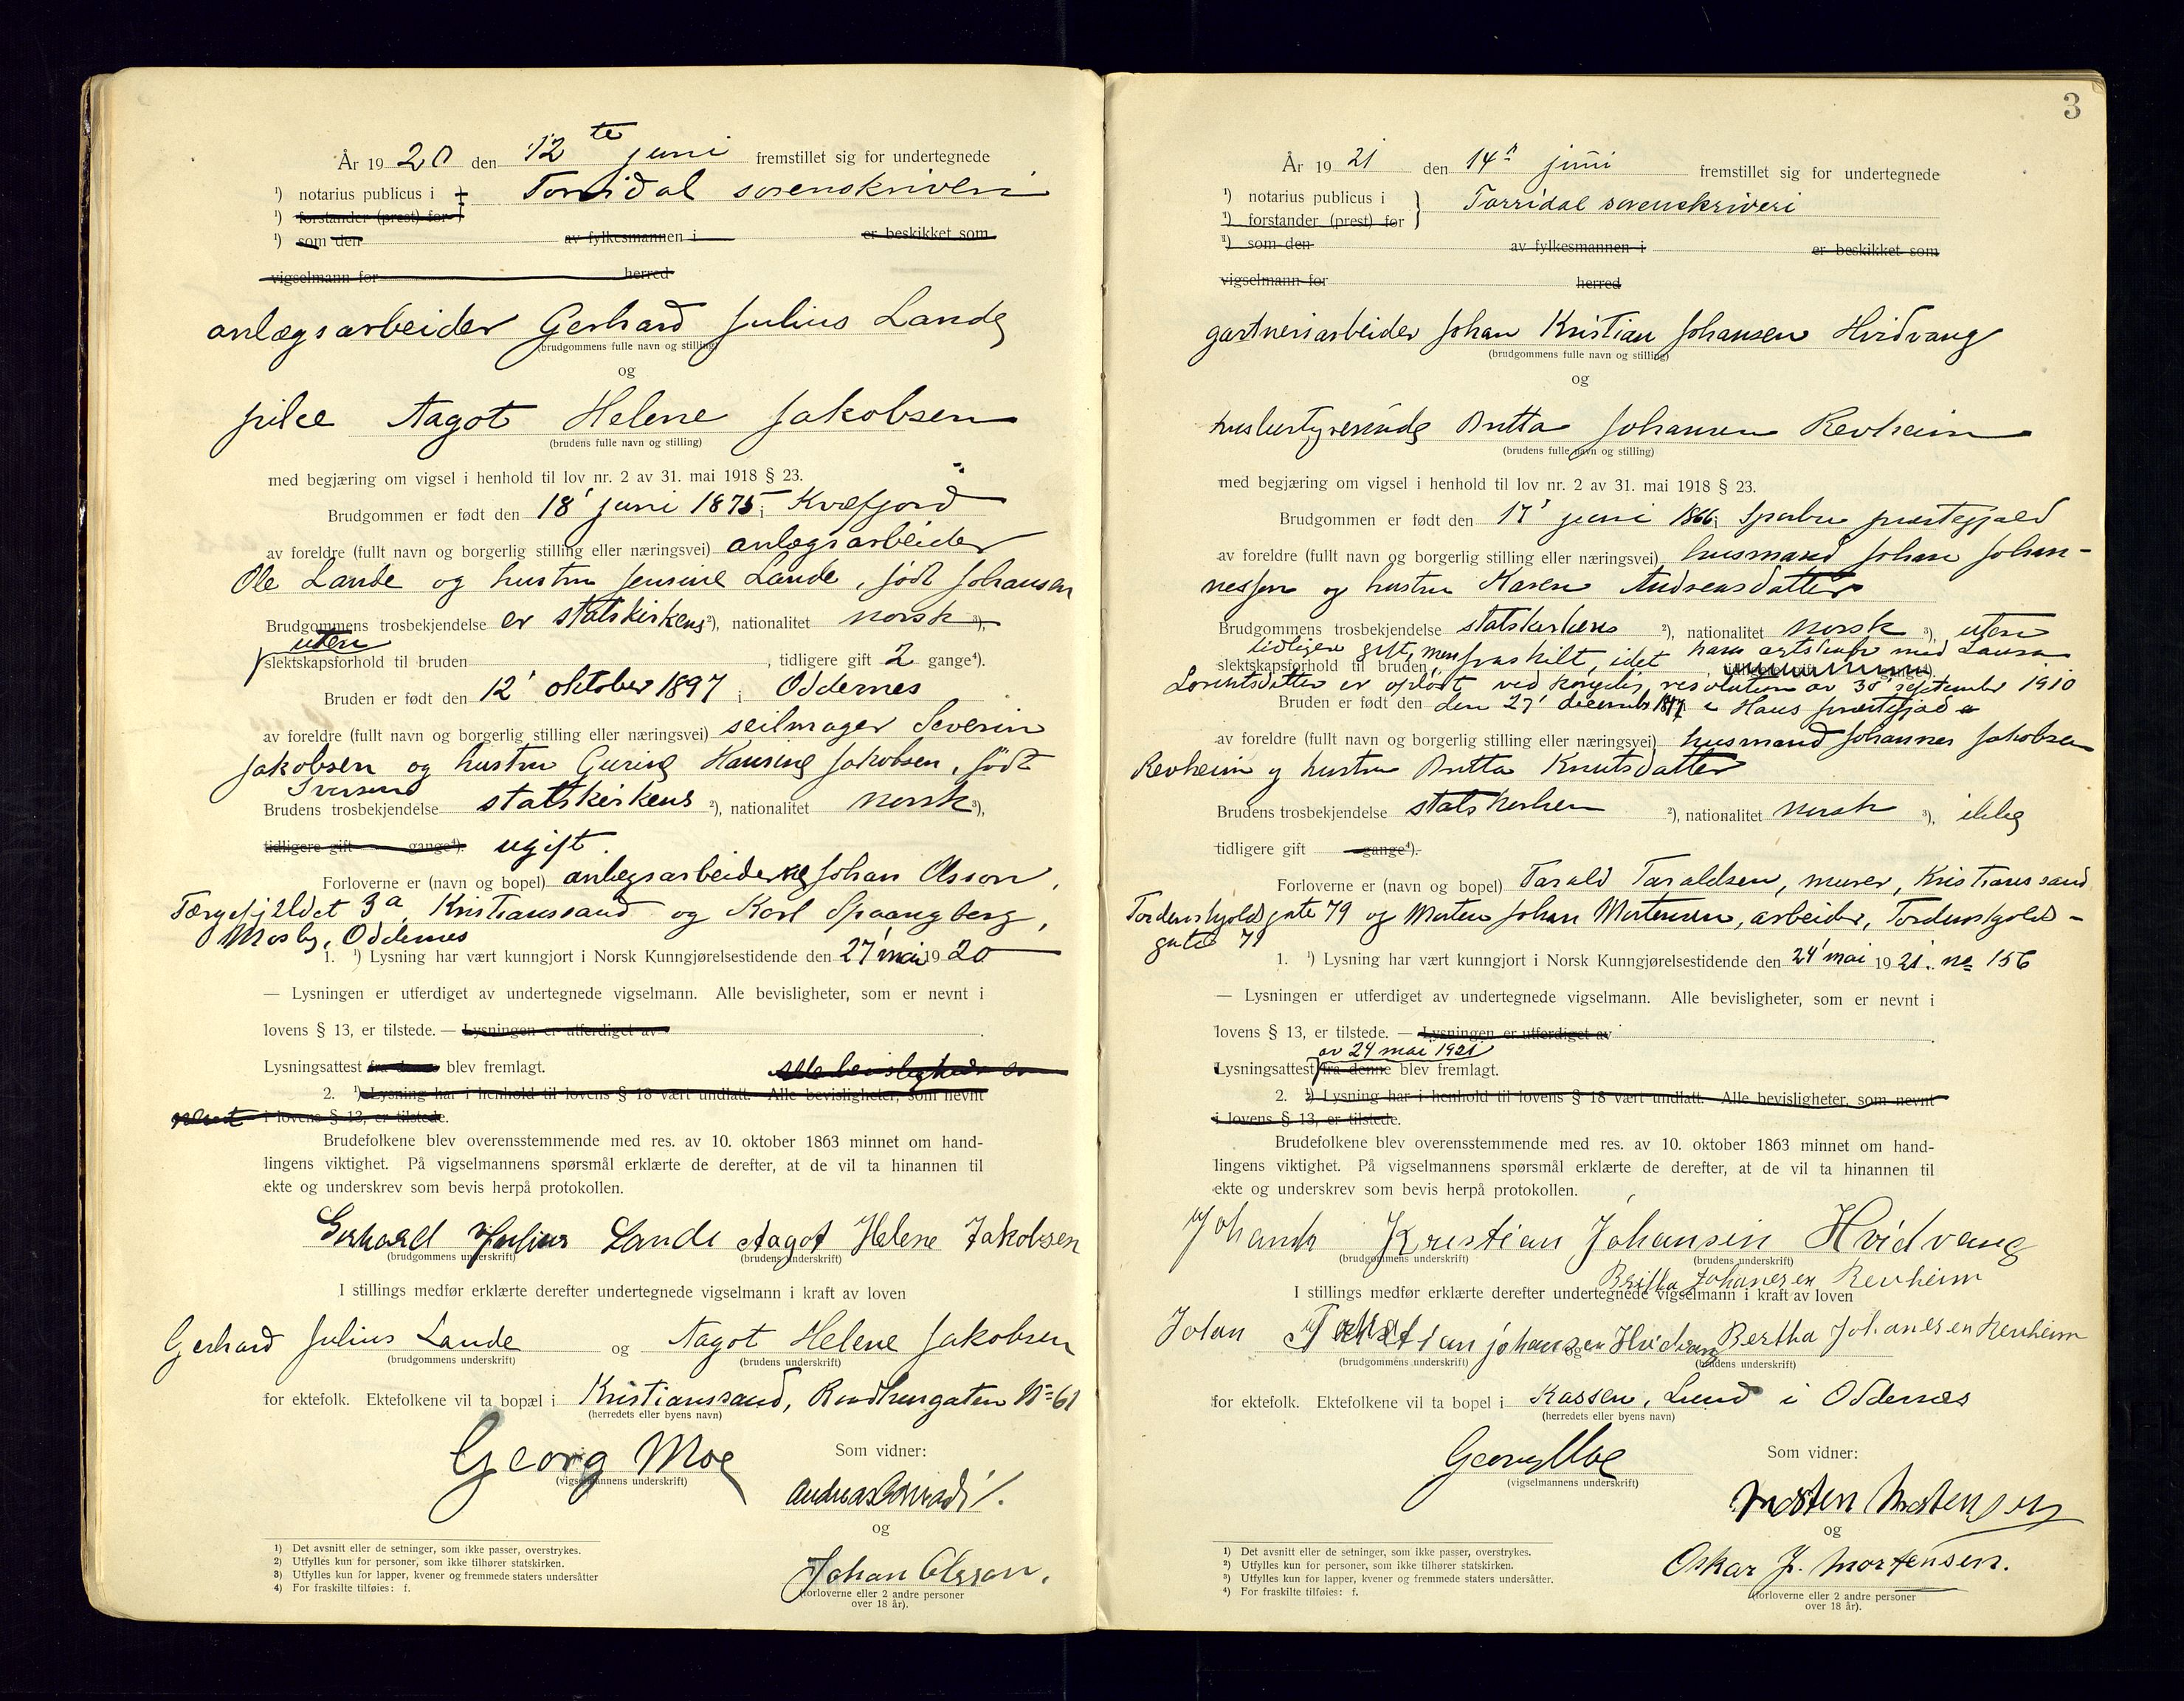 År 1920 den 12te juni fremstillet sig for undertegnede
¹) notarius publicus i Torridal sorenskriveri
¹) forstander (prest) for
¹) som den av fylkesmannen i er beskikket som
vigselmann for herred
anlægsarbeider Gerhard Julius Lande
(brudgommens fulle navn og stilling)
og
pike Aagot Helene Jakobsen
(brudens fulle navn og stilling)
med begjæring om vigsel i henhold til lov nr. 2 av 31. mai 1918 § 23.
Brudgommen er født den 18' juni 1875 i Kvæfjord
av foreldre (fullt navn og borgerlig stilling eller næringsvei) anlægsarbeider
Ole Lande og hustru Jensine Lande, født Johansen
Brudgommens trosbekjendelse er statskirkens ²), nationalitet norsk ³),
uten
slektskapsforhold til bruden , tidligere gift 2 gange⁴).
Bruden er født den 12' oktober 1897 i Oddernes
av foreldre (fullt navn og borgerlig stilling eller næringsvei) seilmager Severin
Jakobsen og hustru Gurine Hansine Jakobsen, født
Iversend
Brudens trosbekjendelse statskirkens ²), nationalitet norsk ³),
tidligere gift gange⁴). ugift.
Forloverne er (navn og bopel) anlægsarbeiderne Johan Olsson,
Færgefjeldet 3a, Kristianssand og Karl Spaangberg,
Mosby, Oddernes
1. ¹) Lysning har vært kunngjort i Norsk Kunngjørelsestidende den 27' mai 1920
— Lysningen er utferdiget av undertegnede vigselmann. Alle bevisligheter, som er nevnt i
lovens § 13, er tilstede. — Lysningen er utferdiget av .
Lysningsattest fra denne blev fremlagt. alle bevisligheder er
2. ¹) Lysning har i henhold til lovens § 18 vært undlatt. Alle bevisligheter, som nevnt
nævnt i lovens § 13, er tilstede.
Brudefolkene blev overensstemmende med res. av 10. oktober 1863 minnet om hand-
lingens viktighet. På vigselmannens spørsmål erklærte de derefter, at de vil ta hinannen til
ekte og underskrev som bevis herpå protokollen.
Gerhard Julius Lande Aagot Helene Jakobsen
(brudgommens underskrift) (brudens underskrift)
I stillings medfør erklærte derefter undertegnede vigselmann i kraft av loven
Gerhard Julius Lande og Aagot Helene Jakobsen
(brudgommens underskrift) (brudens underskrift)
for ektefolk. Ektefolkene vil ta bopæl i Kristianssand, No 61
(herredets eller byens navn)
Georg Moe Som vidner:
(vigselmannens underskrift)
Andreas
og
Johan Olsson.
(forloverne eller 2 andre personer
over 18 år).
1) Det avsnitt eller de setninger, som ikke passer, overstrykes.
2) Utfylles kun for personer, som ikke tilhører statskirken.
3) Utfylles kun for lapper, kvener og fremmede staters undersåtter
4) For fraskilte tilføies: f.
3
År 1921 den 14de juni fremstillet sig for undertegnede
¹) notarius publicus i Torridal sorenskriveri
¹) forstander (prest) for
¹) som den av fylkesmannen i er beskikket som
vigselmann for herred
gartneriarbeider Johan Kristian Johansen Hvidvang
(brudgommens fulle navn og stilling)
og
husbestyrerinde Britta Johansen Revheim
(brudens fulle navn og stilling)
med begjæring om vigsel i henhold til lov nr. 2 av 31. mai 1918 § 23.
Brudgommen er født den 17' juni 1866 i Sparbu prestegjæld
av foreldre (fullt navn og borgerlig stilling eller næringsvei) husmand Johan Johan-
nessen og hustru Karen Andreasdatter
Brudgommens trosbekjendelse statskirkens ²), nationalitet norsk ³), uten
tidligere gift, men fraskilt, idet hans egteskap med Laura
slektskapsforhold til bruden, tidligere gift gange⁴).
Lorentsdatter er opløst ved kongelig resolution av 30' september 1910
Bruden er født den den 27' december i Haus prestegjæld
av foreldre (fullt navn og borgerlig stilling eller næringsvei) husmand Johannes Jakobsen
Revheim og hustru Britta Knutsdatter
Brudens trosbekjendelse statskirken ²), nationalitet norsk ³), ikke
tidligere gift gange⁴).
Forloverne er (navn og bopel) Tarald Taraldsen, murer, Kristianssand
Tordenskjolds gate 79 og Morten Johan Mortensen, arbeider, Tordenskjolds-
gate 79
1. ¹) Lysning har vært kunngjort i Norsk Kunngjørelsestidende den 24' mai 1921. no 156
— Lysningen er utferdiget av undertegnede vigselmann. Alle bevisligheter, som er nevnt i
lovens § 13, er tilstede. — Lysningen er utferdiget av .
av 24 mai 1921
Lysningsattest fra denne blev fremlagt.
2. ¹) Lysning har i henhold til lovens § 18 vært undlatt. Alle bevisligheter, som nevnt
i lovens § 13, er tilstede.
Brudefolkene blev overensstemmende med res. av 10. oktober 1863 minnet om hand-
lingens viktighet. På vigselmannens spørsmål erklærte de derefter, at de vil ta hinannen til
ekte og underskrev som bevis herpå protokollen.
Johan Kristian Johansen Hvidvang
(brudgommens underskrift) (brudens underskrift)
Britha Johansen Revheim
I stillings medfør erklærte derefter undertegnede vigselmann i kraft av loven
Johan Kristian johansen Hvidvang Bertha Johansen Revheim
(brudgommens underskrift) og (brudens underskrift)
for ektefolk. Ektefolkene vil ta bopel i Kassen, Lund i Oddernes
(herredets eller byens navn)
Georg Moe Som vidner:
(vigselmannens underskrift)
Morten Mortensen
og
Oskar J. Mortensen.
(forloverne eller 2 andre personer
over 18 år).
¹) Det avsnitt eller de setninger, som ikke passer, overstrykes.
²) Utfylles kun for personer, som ikke tilhører statskirken.
³) Utfylles kun for lapper, kvener og fremmede staters undersåtter.
⁴) For fraskilte tilføies: f.